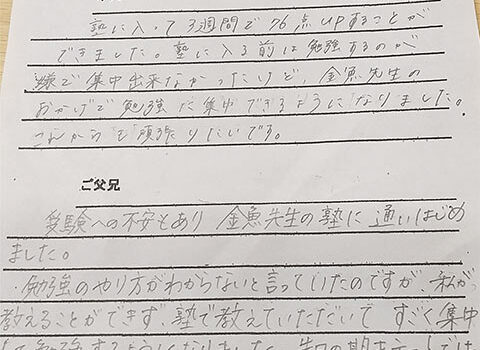 塾に入って3週間で76点UPすることが
できました。塾に入る前は勉強するのが
嫌で集中出来なかったけど、金魚先生の
おかげで勉強に集中できるようになりました。
これからも頑張りたいです。
ご父兄
受験への不安もあり金魚先生の塾に通いはじめ
ました。
勉強のやり方がわからないと言っていたのですが、私が
教えることができず、塾で教えていただいてすごく集中
して勉強するようになりました。